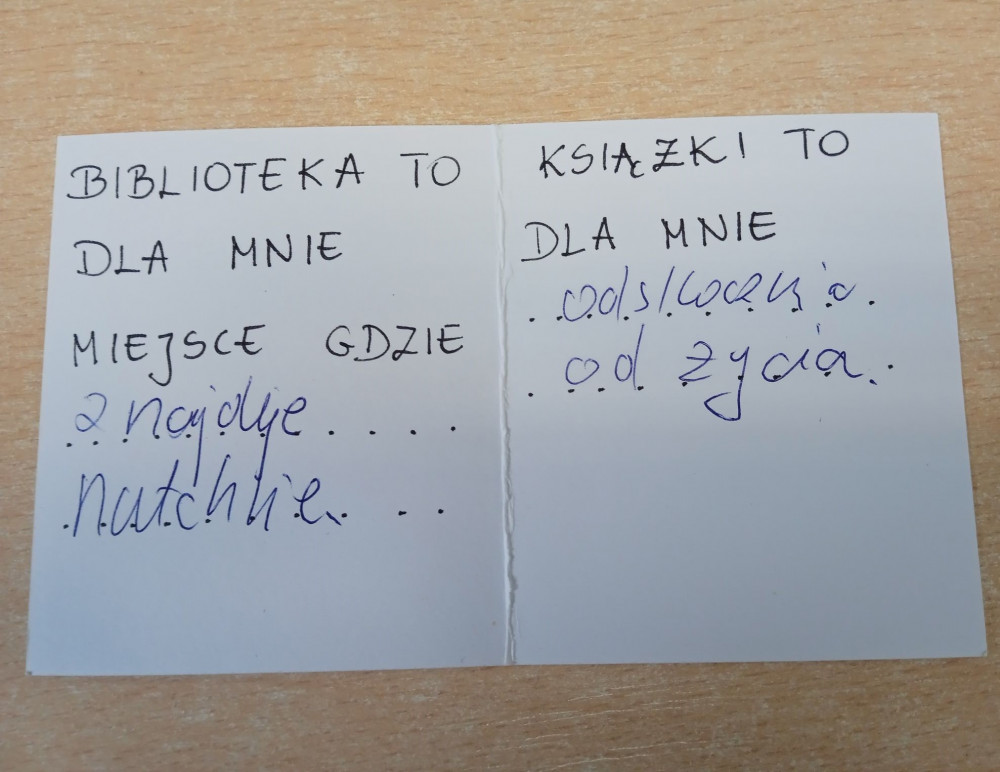 BIBLIOTEKA TO
DLA MNIE
MIEJSCE GDZIE
znajdije....
natchnie...
KSIĄŻKI TO
DLA MNIE
odskocznia.
od życia.